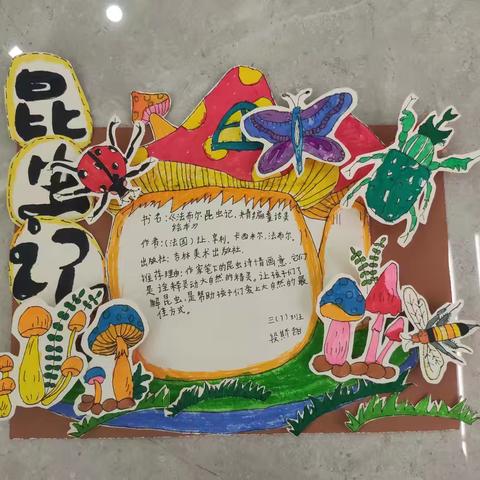 昆
虫
记
书名:《法布尔昆虫记,精编童话美
绘本》
作者:(法国)让.亨利.卡西米尔.法布尔.
出版社:吉林美术出版社.
推荐理由:作家笔下的昆虫诗情画意,它们
是诠释灵动大自然的精灵。让孩子们了
解昆虫,是帮助孩子们爱上大自然的最
佳方式。
三(7)班
段斯